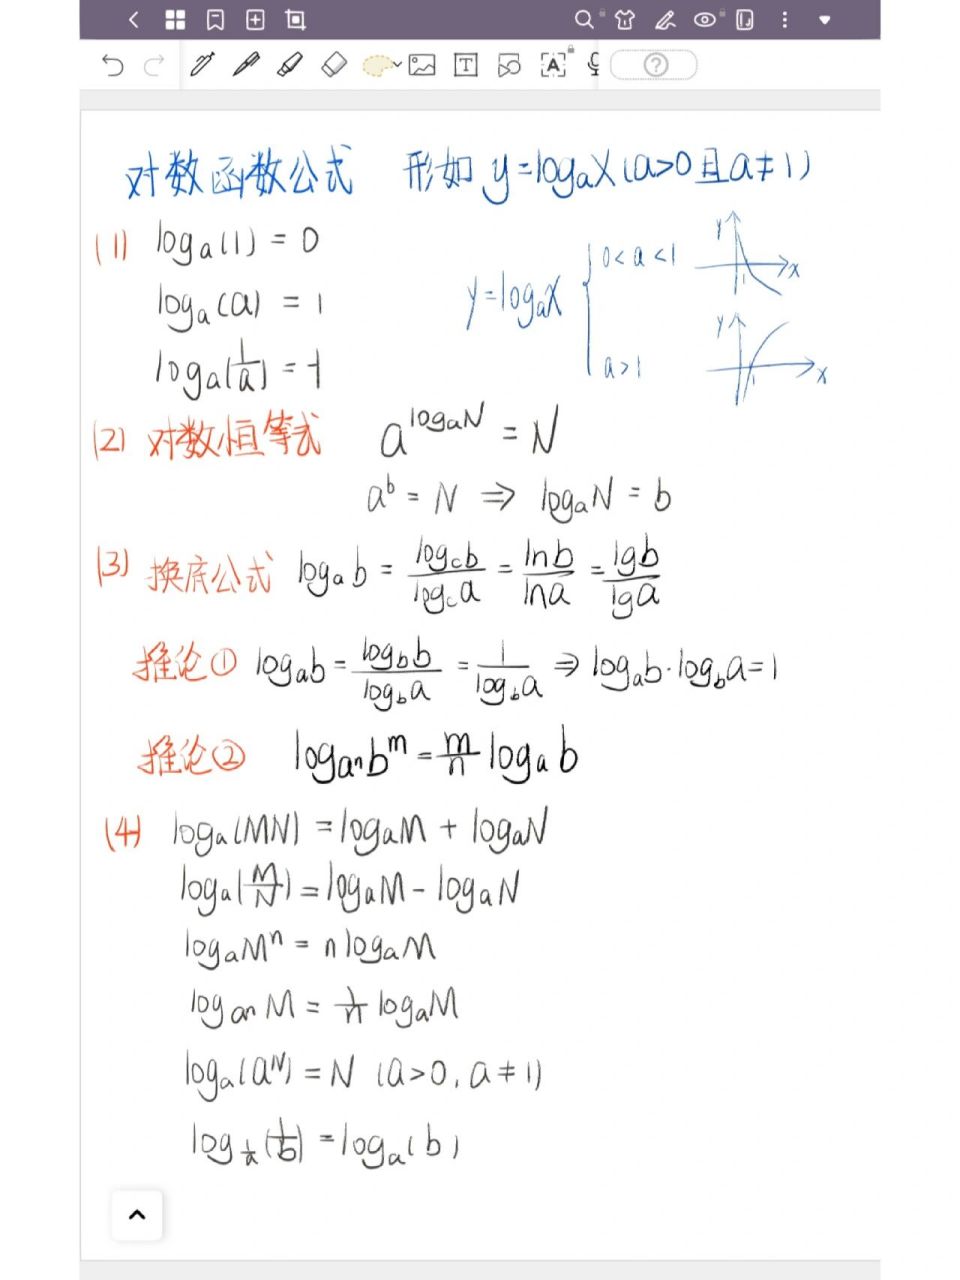 对数函数公式 形如 y=logₐX(a>0且a≠1)
(1) logₐ(1) = 0
logₐ(a) = 1
logₐ(1/a) = -1
y=logₐx { 0<a<1
a>1
y
x
1
y
x
1
(2) 对数恒等式 a^(logₐN) = N
a^b = N ⇒ logₐN = b
(3) 换底公式 logₐb = log_c b / log_c a = lnb/lna = lgb/lga
推论① logₐb = log_b b / log_b a = 1/log_b a ⇒ logₐb·log_b a=1
推论② log_(aⁿ) b^m = m/n logₐb
(4) logₐ(MN) = logₐM + logₐN
logₐ(M/N) = logₐM - logₐN
logₐMⁿ = n logₐM
log_(aⁿ) M = 1/n logₐM
logₐ(a^N) = N (a>0, a≠1)
log_(1/a)(1/b) = logₐ(b)